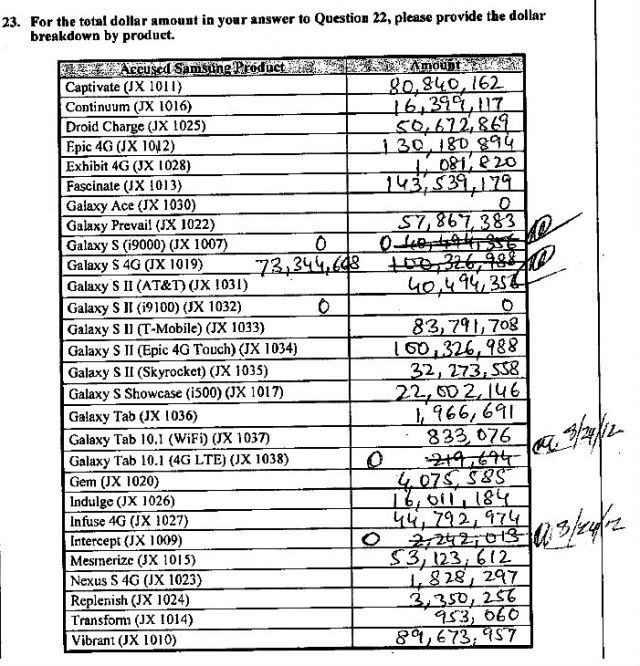 23. For the total dollar amount in your answer to Question 22, please provide the dollar
breakdown by product.
Accused Samsung Product Amount
Captivate (JX 1011) 80,840,162
Continuum (JX 1016) 16,399,117
Droid Charge (JX 1025) 50,672,869
Epic 4G (JX 1012) 130,180,894
Exhibit 4G (JX 1028) 1,081,820
Fascinate (JX 1013) 143,539,179
Galaxy Ace (JX 1030) 0
Galaxy Prevail (JX 1022) 57,867,383
Galaxy S (i9000) (JX 1007) 0 0 40,494,356
Galaxy S 4G (JX 1019) 73,344,668 100,326,988
Galaxy S II (AT&T) (JX 1031) 40,494,356
Galaxy S II (i9100) (JX 1032) 0 0
Galaxy S II (T-Mobile) (JX 1033) 83,791,708
Galaxy S II (Epic 4G Touch) (JX 1034) 100,326,988
Galaxy S II (Skyrocket) (JX 1035) 32,273,558
Galaxy S Showcase (i500) (JX 1017) 22,002,146
Galaxy Tab (JX 1036) 1,966,691
Galaxy Tab 10.1 (WiFi) (JX 1037) 833,076
8/24/12
Galaxy Tab 10.1 (4G LTE) (JX 1038) 0 219,694
Gem (JX 1020) 4,075,585
Indulge (JX 1026) 16,011,184
Infuse 4G (JX 1027) 44,792,974
Intercept (JX 1009) 0 2,242,013 8/24/12
Mesmerize (JX 1015) 53,123,612
Nexus S 4G (JX 1023) 1,828,297
Replenish (JX 1024) 3,350,256
Transform (JX 1014) 953,060
Vibrant (JX 1010) 89,673,957